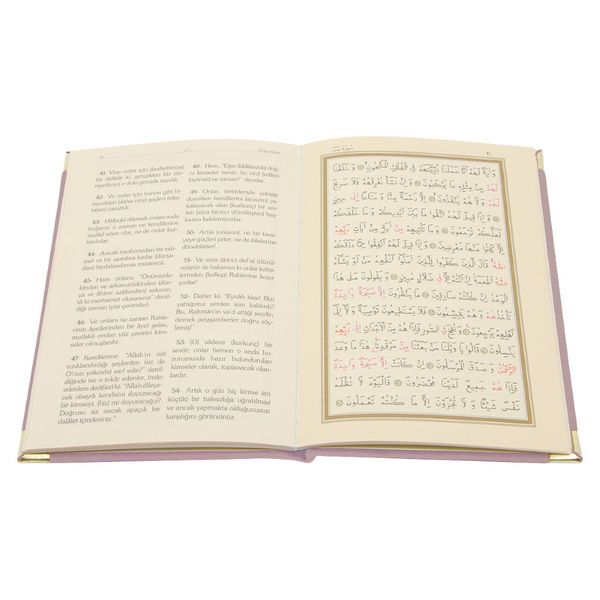 41- Yine onlar için (kudretimize) bir delildir ki, gerçekten biz onların zürriyetlerini o dolu gemide taşıdık.
42- Ve onlar için bunun gibi binecekleri (daha nice) şeyleri (vâsıtaları) yarattık.
43- Hâlbuki dilersek onları suda boğarız; o zaman ne kendilerine imdâd eden olur, ne de onlar kurtarılırlar.
44- Ancak tarafımızdan bir rahmet ve bir zamâna kadar (dünyadan) faydalandırma müstesnâ.
45- Hem onlara: "Önünüzdekinden ve arkanızdakinden (dünya ve âhiret azâbından) sakının; tâ ki merhamet olunasınız" denildiği zaman (yüz çevirirler).
46- Ve onlara ne zaman Rablerinin âyetlerinden bir âyet gelse, mutlakā ondan yüz çevirici kimseler olmuşlardır.
47- Kendilerine: "Allah'ın sizi rızıklandırdığı şeylerden (siz de O'nun yolunda) sarf edin!" denildiğinde ise o inkâr edenler, îmân edenlere dedi(ler) ki: "Allah dileyecek olsaydı kendisini doyuracağı bir kimseyi, (biz mi) doyuracağız? Doğrusu siz ancak apaçık bir dalâlet içindesiniz."
48- Hem, "Eğer (iddiânızda) doğru kimseler iseniz, bu vaad (edilen kıyâmet) ne zaman?" diyorlar.
49- Onlar, birbirleriyle çekişip dururlarken kendilerini (ansızın) yakalayacak olan (korkunç) bir sesten (sûra birinci üfürülüşten) başkasını beklemiyorlar.
50- Artık (onlar) ne bir tavsiyeye güçleri yeter, ne de âilelerine dönebilirler!
51- Ve sûra (ikinci def'a) üfürülmüştür de bakarsın ki onlar kabirlerinden (kalkıp) Rablerine koşuyorlar.
52- Derler ki: "Eyvâh bize! Bizi yattığımız yerden kim kaldırdı? Bu, Rahmân'ın va'd ettiği şeydir; demek peygamberler doğru söylemiş!"
53- (O) sâdece (korkunç) bir sestir; onlar hemen o anda huzurumuzda hazır bulundurulan kimseler olarak, toplanacak olanlardır.
54- Artık o gün hiç kimse (en küçük) bir haksızlığa uğratılmaz ve ancak yapmakta olduğunuzun karşılığını görürsünüz.
وَاٰيَةٌ لَهُمْ اَنَّا حَمَلْنَا ذُرِّيَّتَهُمْ فِي الْفُلْكِ الْمَشْحُونِ ۝ وَخَلَقْنَا
لَهُمْ مِنْ مِثْلِهِ مَا يَرْكَبُونَ ۝ وَاِنْ نَشَأْ نُغْرِقْهُمْ فَلَا صَرِيخَ
لَهُمْ وَلَا هُمْ يُنْقَذُونَ ۝ اِلَّا رَحْمَةً مِنَّا وَمَتَاعًا اِلٰى حِينٍ
۝ وَاِذَا قِيلَ لَهُمُ اتَّقُوا مَا بَيْنَ اَيْدِيكُمْ وَمَا خَلْفَكُمْ
لَعَلَّكُمْ تُرْحَمُونَ ۝ وَمَا تَأْتِيهِمْ مِنْ اٰيَةٍ مِنْ اٰيَاتِ رَبِّهِمْ
اِلَّا كَانُوا عَنْهَا مُعْرِضِينَ ۝ وَاِذَا قِيلَ لَهُمْ اَنْفِقُوا مِمَّا رَزَقَكُمُ
اللّٰهُ قَالَ الَّذِينَ كَفَرُوا لِلَّذِينَ اٰمَنُوا اَنُطْعِمُ مَنْ لَوْ يَشَاءُ
اللّٰهُ اَطْعَمَهُ اِنْ اَنْتُمْ اِلَّا فِي ضَلَالٍ مُبِينٍ ۝ وَيَقُولُونَ مَتٰى هٰذَا
الْوَعْدُ اِنْ كُنْتُمْ صَادِقِينَ ۝ مَا يَنْظُرُونَ اِلَّا صَيْحَةً وَاحِدَةً
تَأْخُذُهُمْ وَهُمْ يَخِصِّمُونَ ۝ فَلَا يَسْتَطِيعُونَ تَوْصِيَةً وَلَا اِلٰى
اَهْلِهِمْ يَرْجِعُونَ ۝ وَنُفِخَ فِي الصُّورِ فَاِذَا هُمْ مِنَ الْاَجْدَاثِ اِلٰى رَبِّهِمْ
يَنْسِلُونَ ۝ قَالُوا يَا وَيْلَنَا مَنْ بَعَثَنَا مِنْ مَرْقَدِنَا هٰذَا مَا وَعَدَ
الرَّحْمٰنُ وَصَدَقَ الْمُرْسَلُونَ ۝ اِنْ كَانَتْ اِلَّا صَيْحَةً وَاحِدَةً
فَاِذَا هُمْ جَمِيعٌ لَدَيْنَا مُحْضَرُونَ ۝ فَالْيَوْمَ لَا تُظْلَمُ
نَفْسٌ شَيْئًا وَلَا تُجْزَوْنَ اِلَّا مَا كُنْتُمْ تَعْمَلُونَ ۝